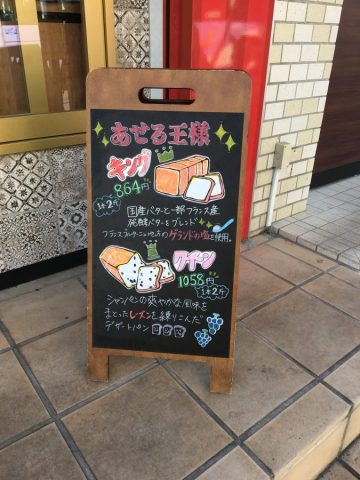 あせる王様
キング
864円
1本2斤
国産バターと一部フランス産
発酵バターをブレンド
フランスブルターニュ地方のゲランドの塩を使用。
クイーン
1058円
1本2斤
シャンパンの爽やかな風味を
まとったレーズンを練りこんだ
デザートパン